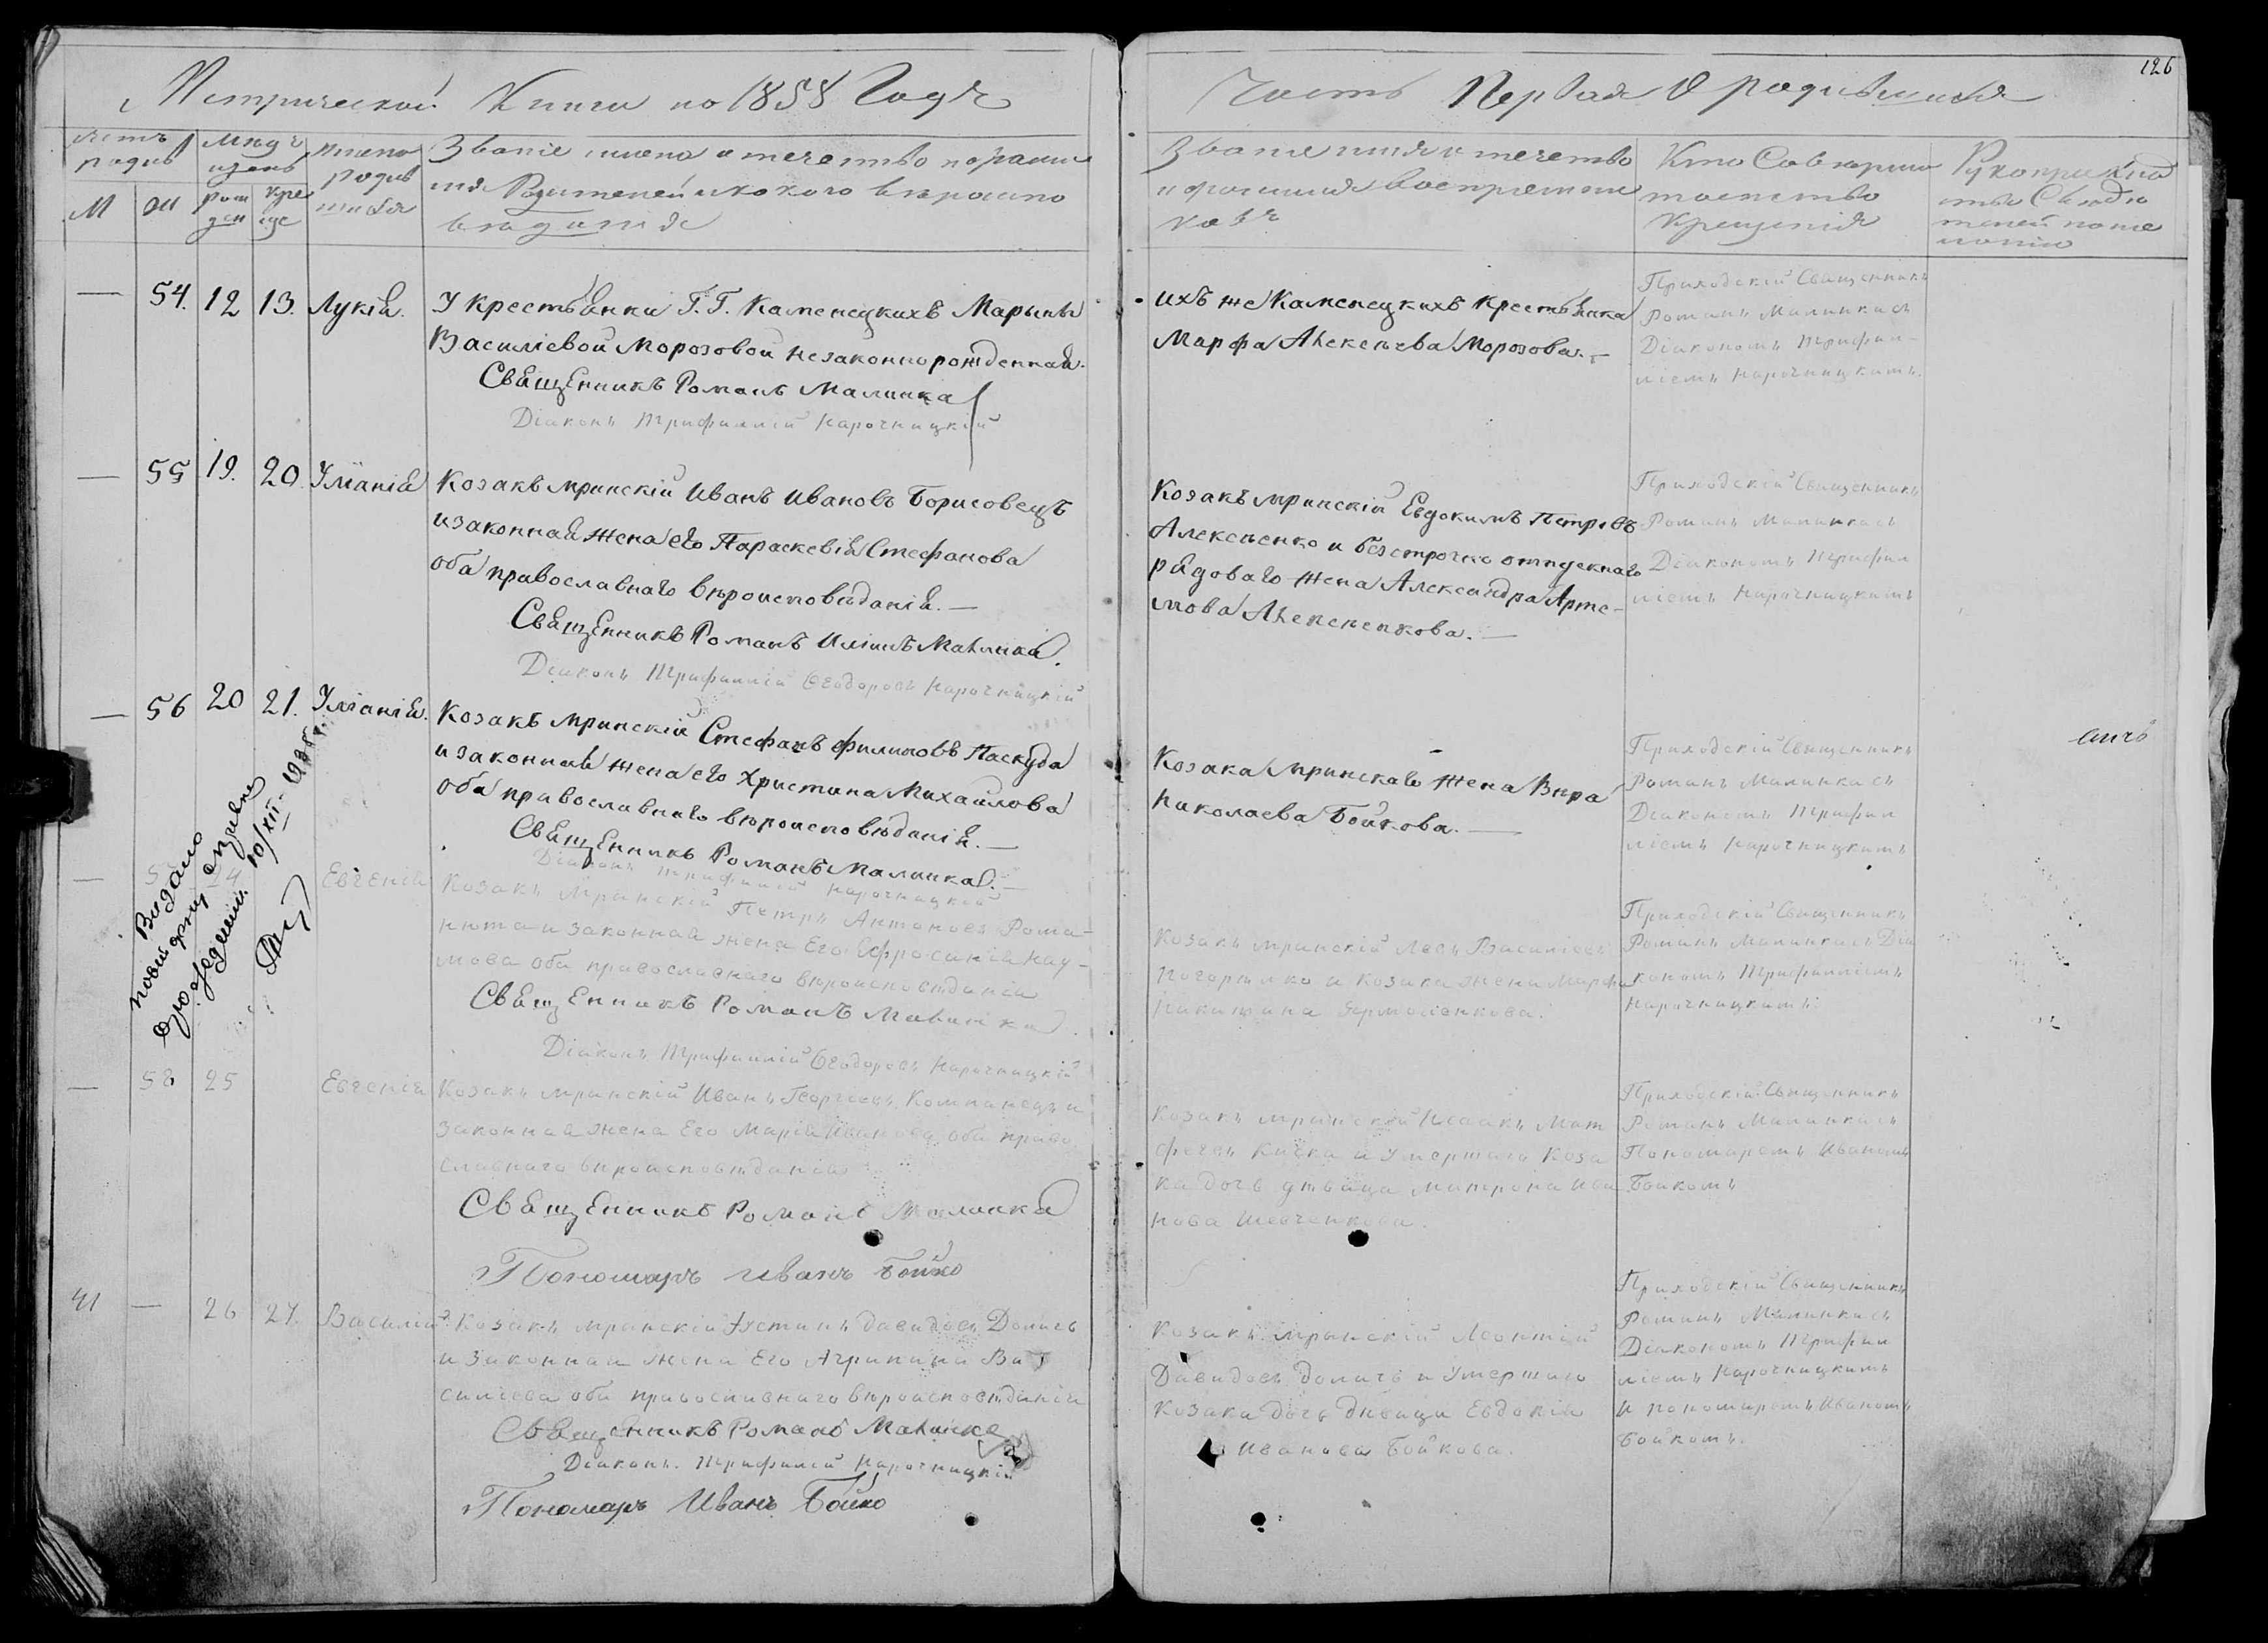 Метрической Книги по 1858 Годъ
Часть Первая О родившихся
126
М
Званіе имена отечество и фамилія
Родителей и какого вѣроиспо
вѣданія
Званіе имя отечество
и фамилія воспріемни
ковъ
Кто Совершил
таинство
крещенія
Рукоприклад
ство Свидѣ
телей по же
ланію
— 54. 12 13. Лукія.
У Крестьянки Г.Г. Каменецкихъ Марыны
Василіевой Морозовой незаконнорожденная.
Священникъ Романъ Малинка
Діаконъ Трифиллій Нарочницкій
ихъ же Каменецкихъ Крестьянка
Марфа Алексѣева Морозова. —
Приходскій Священникъ
Романъ Малинка съ
Діакономъ Трифил-
ліемъ Нарочницкимъ.
— 55 19. 20. Уліанія
Козакъ мринскій Иванъ Ивановъ Борисовецъ
и законная жена его Параскевія Стефанова
оба православнаго вѣроисповѣданія. —
Священникъ Романъ Малинка.
Діаконъ Трифиллій Ѳеодоровъ Нарочницкій
Козакъ мринскій Евдокимъ Петровъ
Алексѣенко и безсрочно отпускнаго
рядоваго жена Александра Арте-
мова Алексѣенкова. —
Приходскій Священникъ
Романъ Малинка съ
Діакономъ Трифил
ліемъ Нарочницкимъ
— 56 20 21. Уліанія.
Козакъ мринскій Стефанъ Филиповъ Паскуда
и законная жена его Христина Михайлова
оба православнаго вѣроисповѣданія. —
Священникъ Романъ Малинка. —
Діаконъ Трифиллій Нарочницкій
Козака мринскаго жена Вѣра
Николаева Бойкова. —
Приходскій Священникъ
Романъ Малинка съ
Діакономъ Трифил
ліемъ Нарочницкимъ
Видано
10/XII-
— 24 Евгенія
Козакъ Мринскій Петръ Антоновъ Рома-
нюта и законная жена Его Ефросинія Нау-
мова оба православнаго вѣроисповѣданія
Священникъ Романъ Малинка.
Діаконъ Трифиллій Ѳеодоровъ Нарочницкій
Козакъ мринскій Левъ Василіевъ
и Козака жена Марфа
Никитина Ярмоленкова.
Приходскій Священникъ
Романъ Малинка съ Діа
кономъ Трифилліемъ
Нарочницкимъ
— 58 25 Евгенія
Козакъ мринскій Иванъ Георгіевъ Компанецъ и
законная жена Его Марія Иванова оба право
славнаго вѣроисповѣданія
Священникъ Романъ Малинка
Пономарь Иванъ Бойко
Козакъ мринскій Исаакъ Мат
феевъ Кичка и Умершаго Коза
ка дочь дѣвица Матрона Ива
нова Шевченкова.
Приходскій Священникъ
Романъ Малинка съ
Пономаремъ Иваномъ
Бойкомъ
41 — 26 27. Василій
Козакъ мринскій Іустинъ Давидовъ Долись
и Законная жена Его Агрипина Ва
силіева оба православнаго вѣроисповѣданія
Священникъ Романъ Малинка
Діаконъ Трифиллій Нарочницкій
Пономарь Иванъ Бойко
Козакъ мрынскій Леонтій
Давидовъ и Умершаго
Козака дочь дѣвица Евдокія
Иванова Бойкова.
Приходскій Священникъ
Романъ Малинка съ
Діакономъ Трифил
ліемъ Нарочницкимъ
и пономаремъ Иваномъ
Бойкомъ.